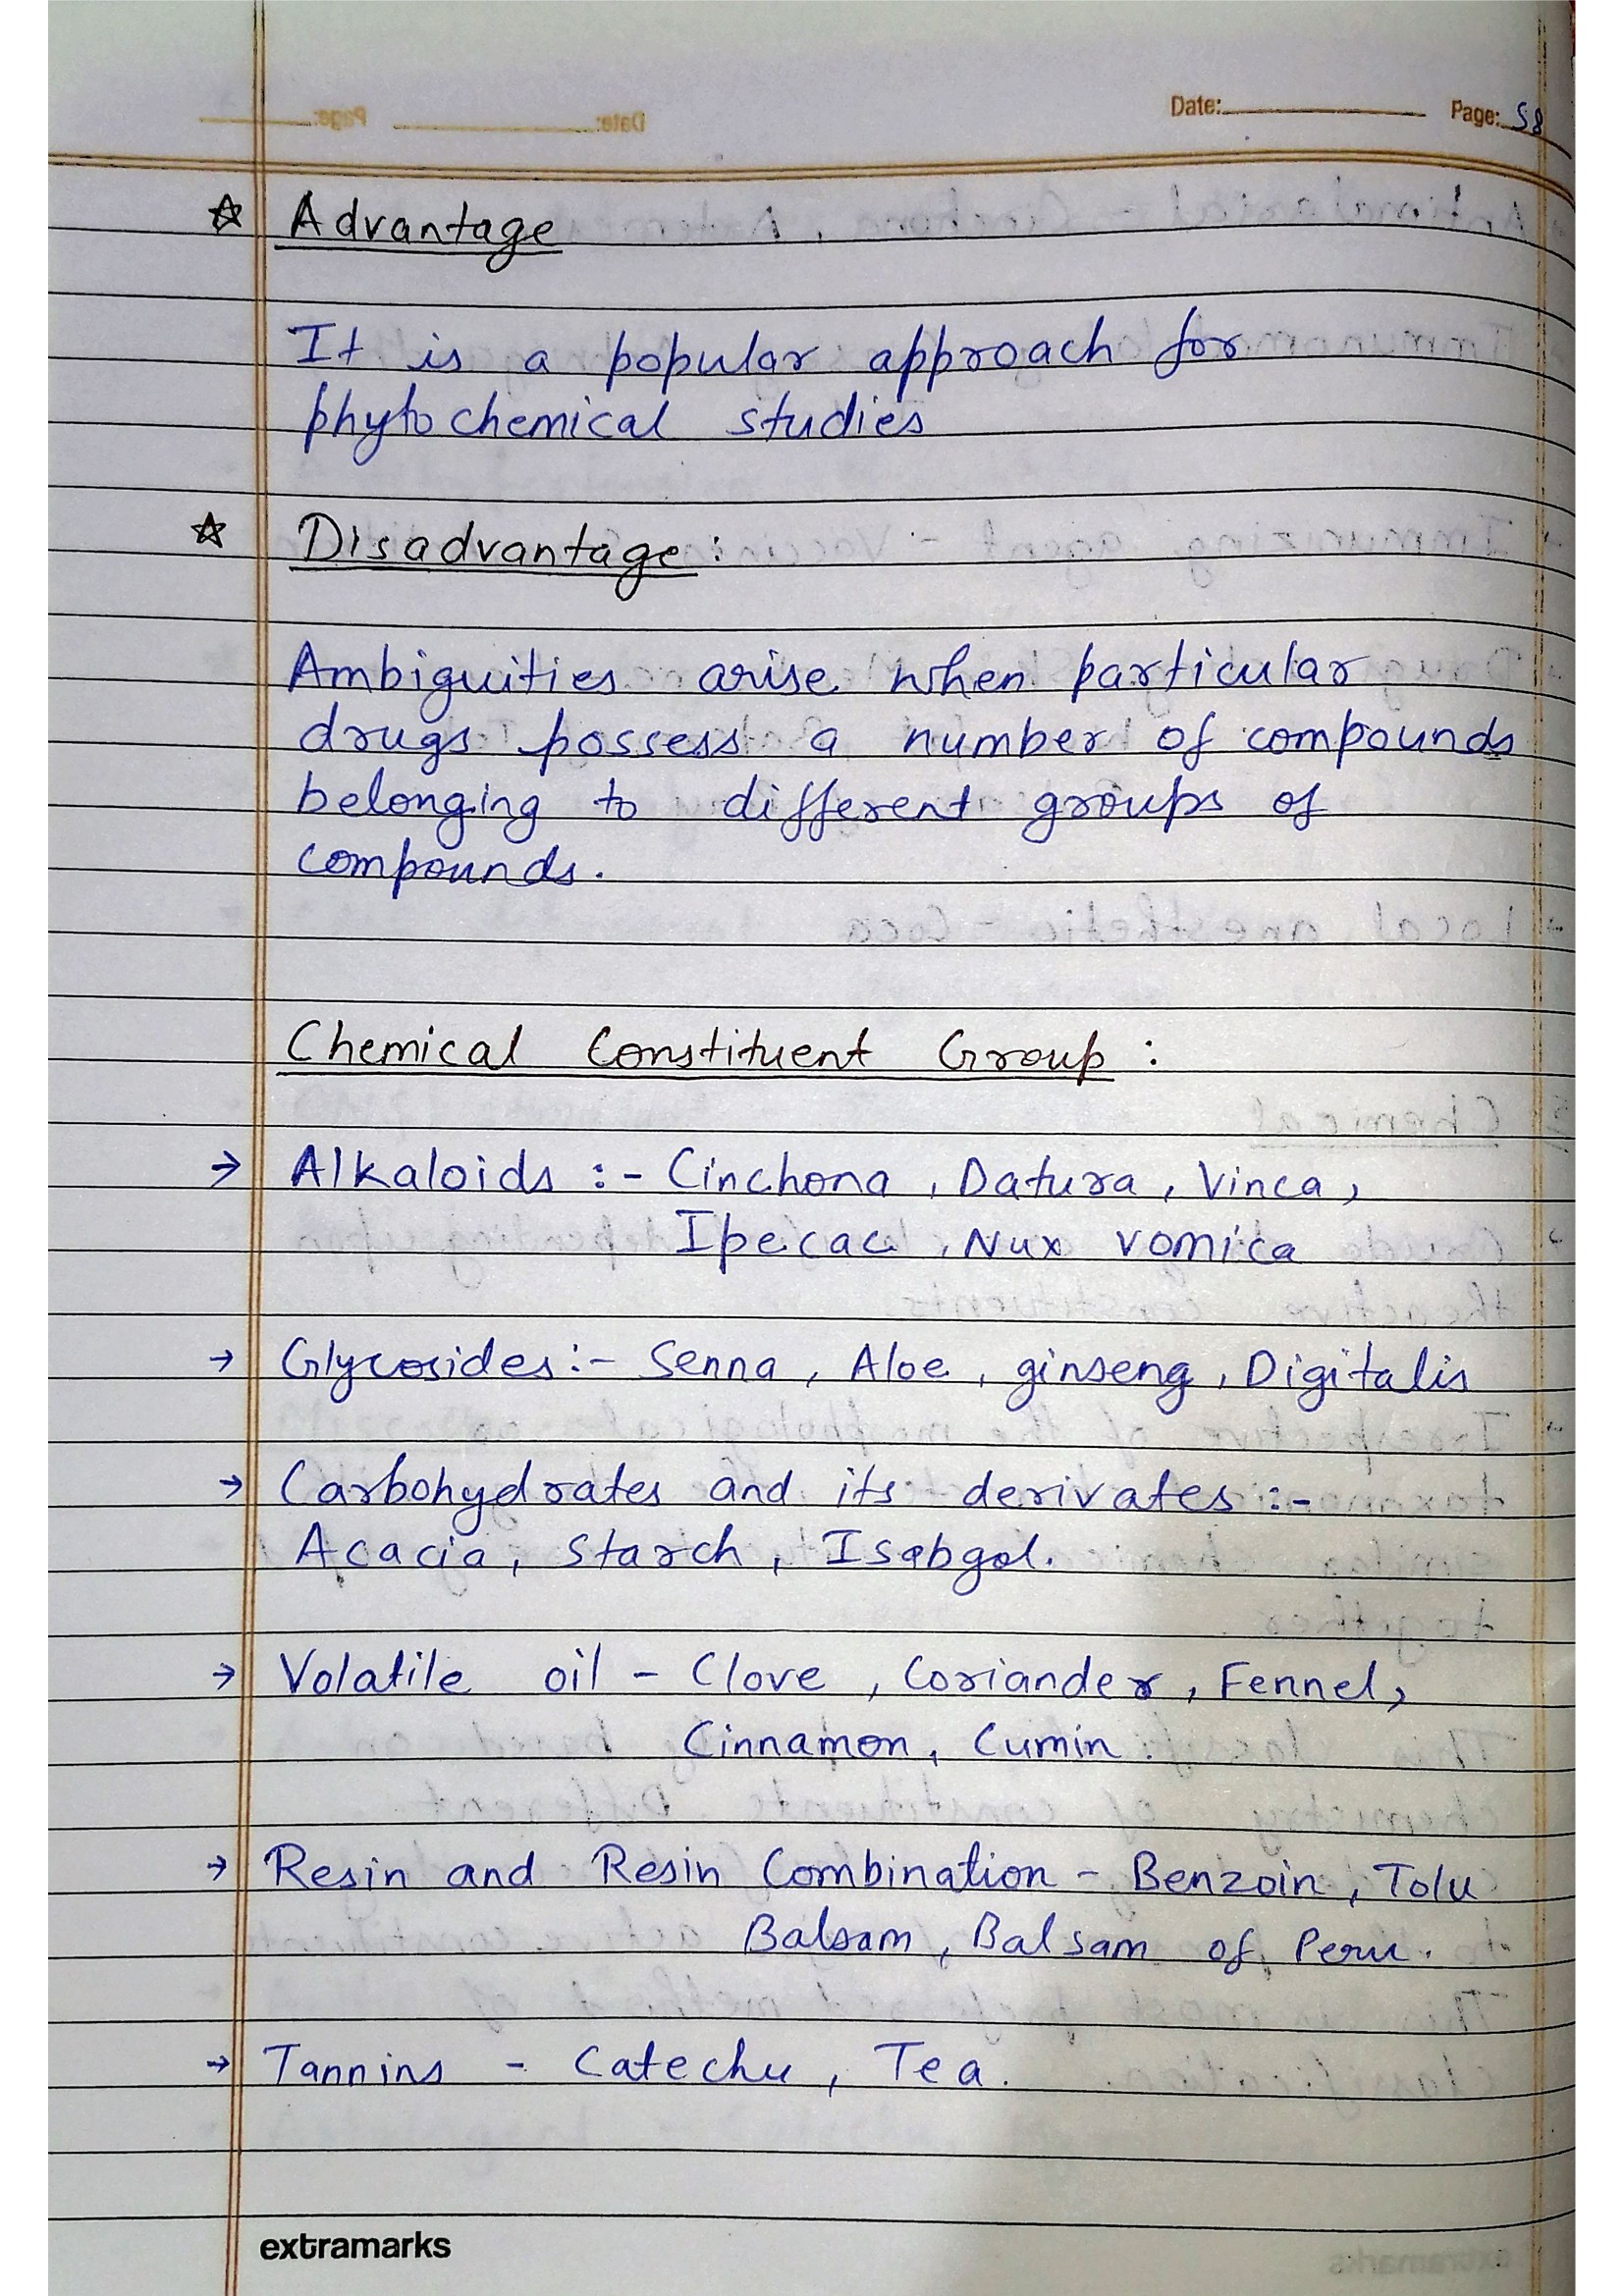 Date: Page: 58
☆ Advantage
It is a popular approach for
phytochemical studies
☆ Disadvantage :
Ambiguities arise when particular
drugs possess a number of compounds
belonging to different groups of
compounds.
Chemical Constituent Group :
→ Alkaloids :- Cinchona , Datura , Vinca ,
Ipecac , Nux vomica
→ Glycosides :- Senna , Aloe , ginseng , Digitalis
→ Carbohydrates and its derivates :-
Acacia , Starch , Isabgol.
→ Volatile oil - Clove , Coriander , Fennel ,
Cinnamon , Cumin .
→ Resin and Resin Combination - Benzoin , Tolu
Balsam , Balsam of Peru .
→ Tannins - Catechu , Tea .
extramarks